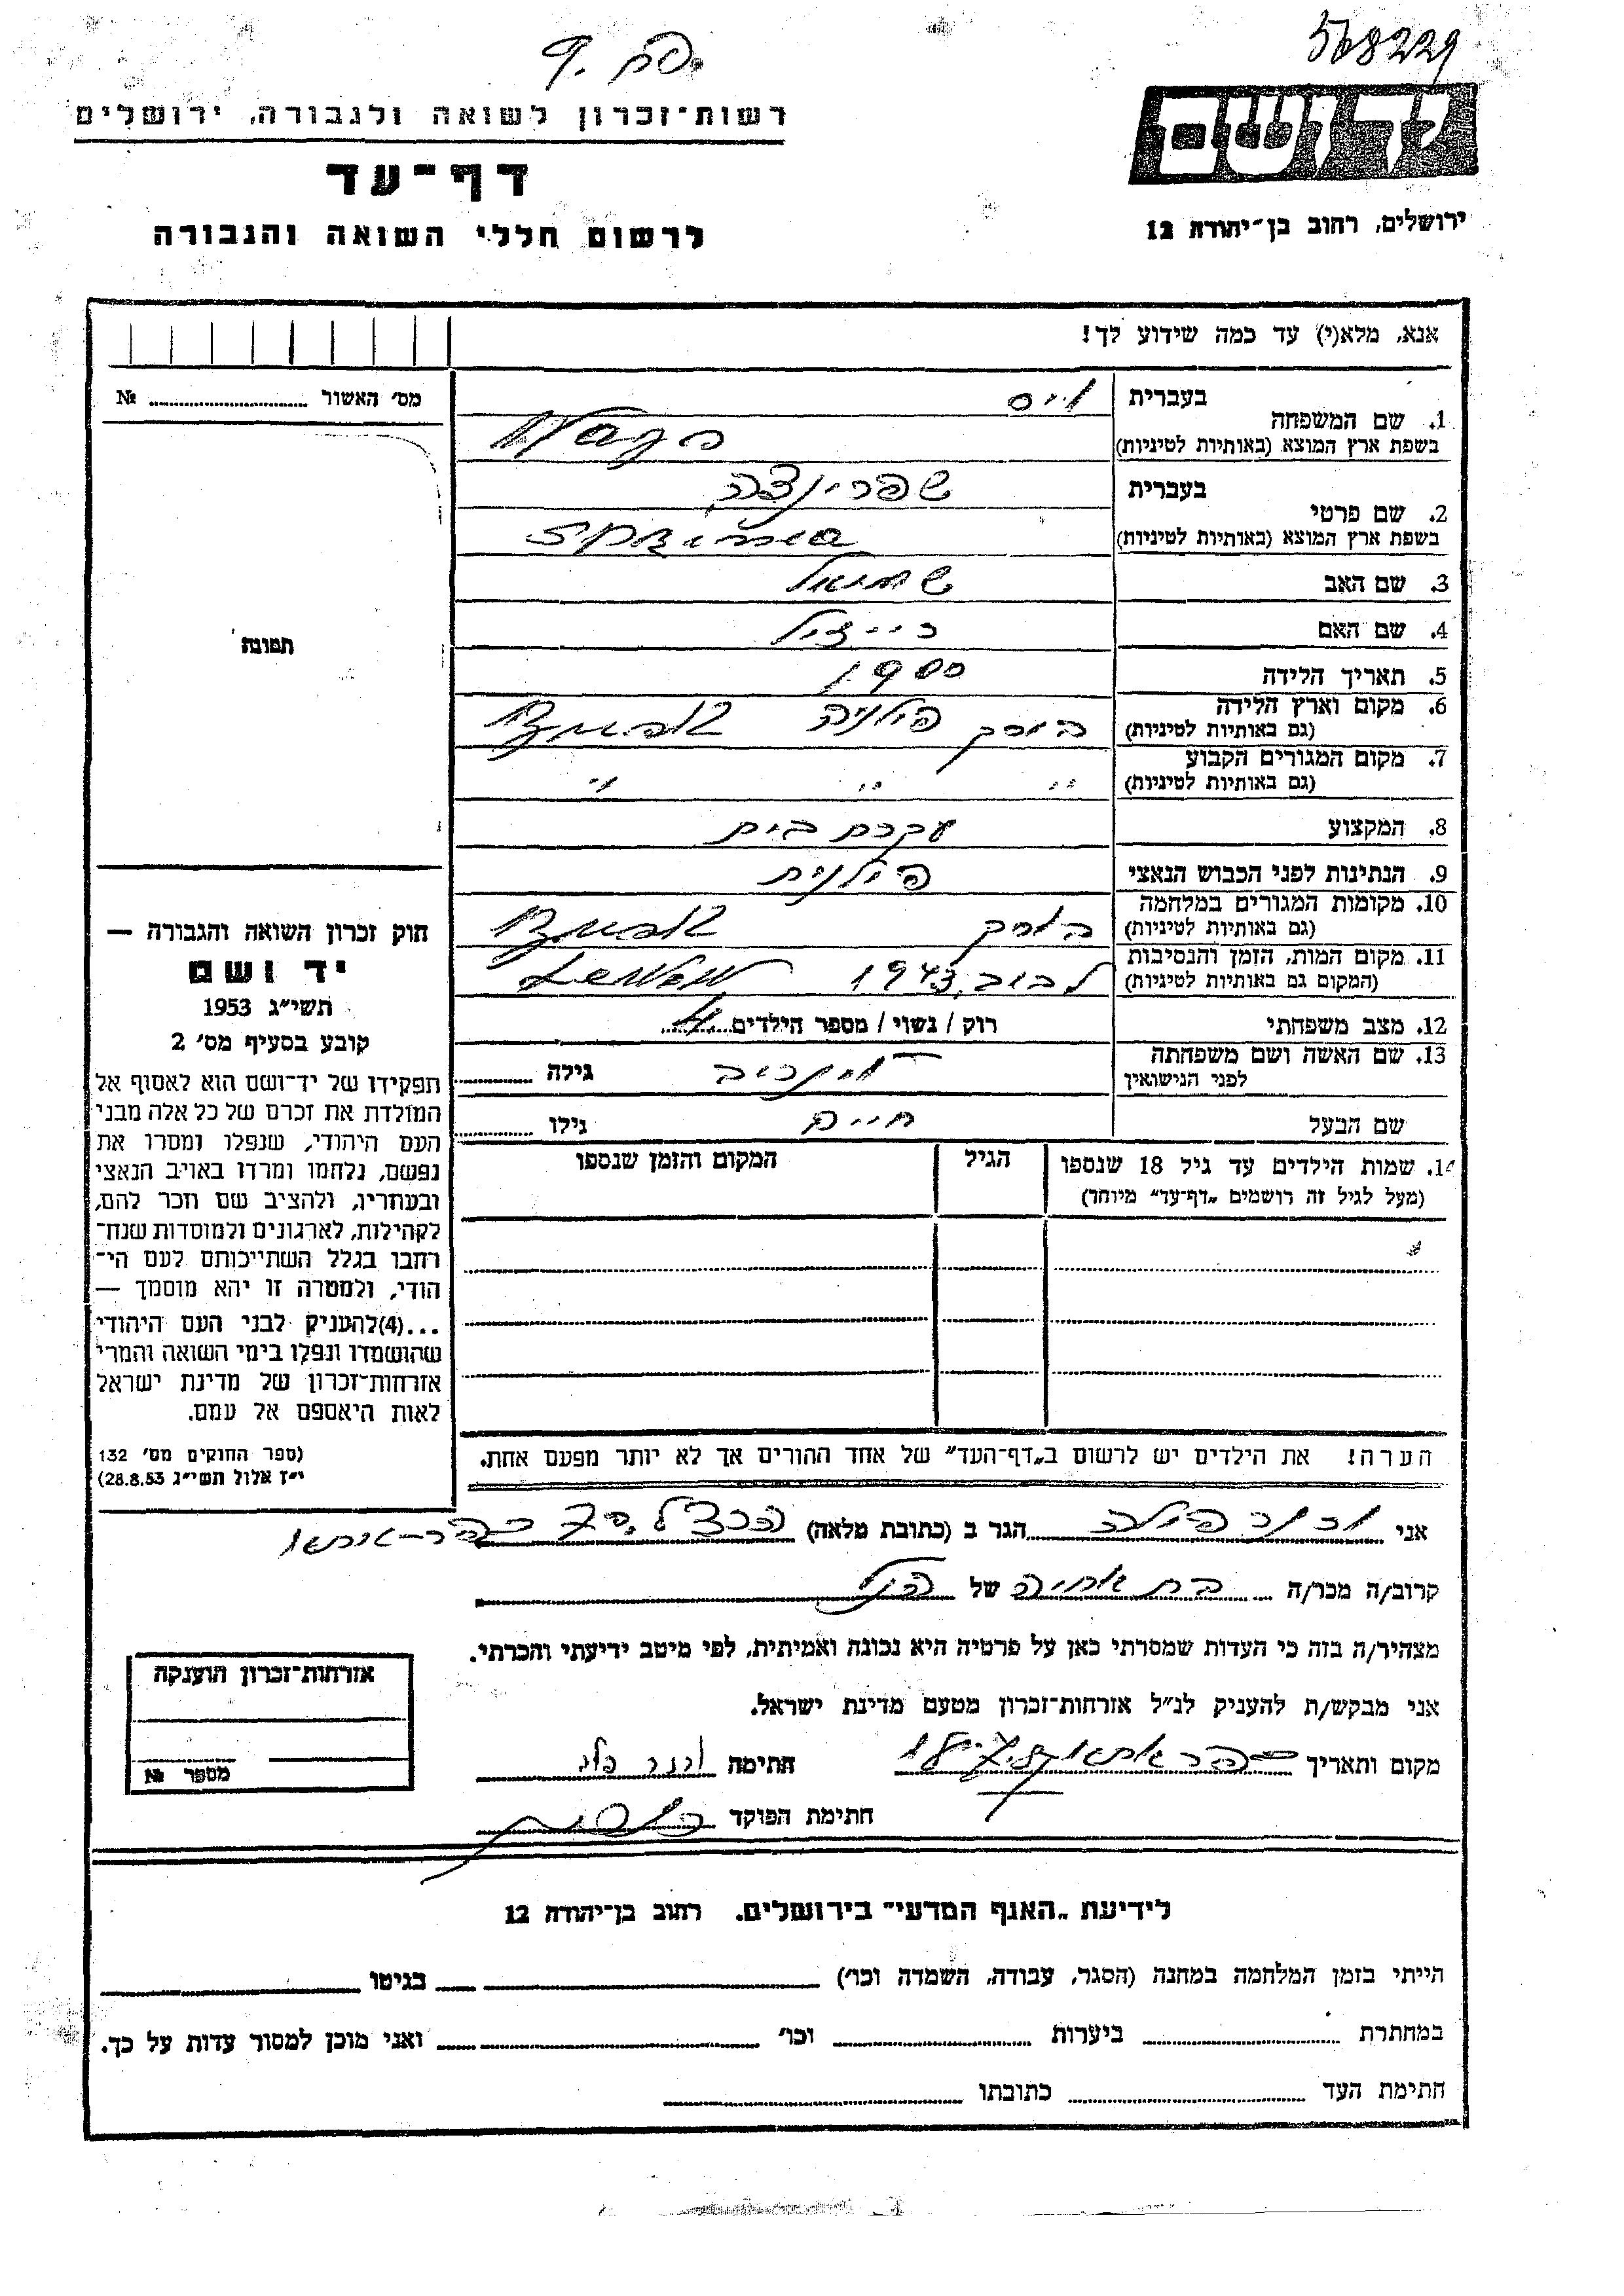 568229
רשות־זכרון לשואה ולגבורה, ירושלים
דף־עד
לרשום חללי השואה והגבורה
יד ושם
ירושלים, רחוב בן־יהודה 12
אנא, מלא(י) עד כמה שידוע לך!
מס׳ האשור № 
תמונה
חוק זכרון השואה והגבורה —
יד ושם
תשי״ג 1953
קובע בסעיף מס׳ 2
תפקידו של יד־ושם הוא לאסוף אל
המולדת את זכרם של כל אלה מבני
העם היהודי, שנפלו ומסרו את
נפשם, נלחמו ומרדו באויב הנאצי
ובעוזריו, ולהציב שם וזכר להם,
לקהילות, לארגונים ולמוסדות שנח־
רבו בגלל השתייכותם לעם הי־
הודי, ולמטרה זו יהא מוסמך —
...(4)להעניק לבני העם היהודי
שהושמדו ונפלו בימי השואה והמרי
אזרחות־זכרון של מדינת ישראל
לאות היאספם אל עמם.
(ספר החוקים מס׳ 132
י״ז אלול תשי״ג 28.8.53)
1. שם המשפחה בעברית וייס
בשפת ארץ המוצא (באותיות לטיניות)
2. שם פרטי בעברית שפרינצה
בשפת ארץ המוצא (באותיות לטיניות)
3. שם האב שמואל
4. שם האם ריזל
5. תאריך הלידה 1900
6. מקום וארץ הלידה פולניה
(גם באותיות לטיניות)
7. מקום המגורים הקבוע ״ ״ ״
(גם באותיות לטיניות)
8. המקצוע עקרת בית
9. הנתינות לפני הכבוש הנאצי פולנית
10. מקומות המגורים במלחמה
(גם באותיות לטיניות)
11. מקום המות, הזמן והנסיבות לבוב, 1943
(המקום גם באותיות לטיניות)
12. מצב משפחתי רוק / נשוי / מספר הילדים 4
13. שם האשה ושם משפחתה גילה
לפני הנישואין
שם הבעל חיים גילו
14. שמות הילדים עד גיל 18 שנספו הגיל המקום והזמן שנספו
(מעל לגיל זה רושמים „דף־עד״ מיוחד)
הערה! את הילדים יש לרשום ב„דף־העד״ של אחד ההורים אך לא יותר מפעם אחת.
אני הגר ב (כתובת מלאה) הרצל
קרוב/ה מכר/ה בת אחיה של הנ״ל
מצהיר/ה בזה כי העדות שמסרתי כאן על פרטיה היא נכונה ואמיתית, לפי מיטב ידיעתי והכרתי.
אני מבקש/ת להעניק לנ״ל אזרחות־זכרון מטעם מדינת ישראל.
מקום ותאריך חתימה
חתימת הפוקד
אזרחות־זכרון הוענקה
מספר №
לידיעת „האגף המדעי״ בירושלים. רחוב בן־יהודה 12
הייתי בזמן המלחמה במחנה (הסגר, עבודה, השמדה וכו׳) בגיטו
במחתרת ביערות וכו׳ ואני מוכן למסור עדות על כך.
חתימת העד כתובתו